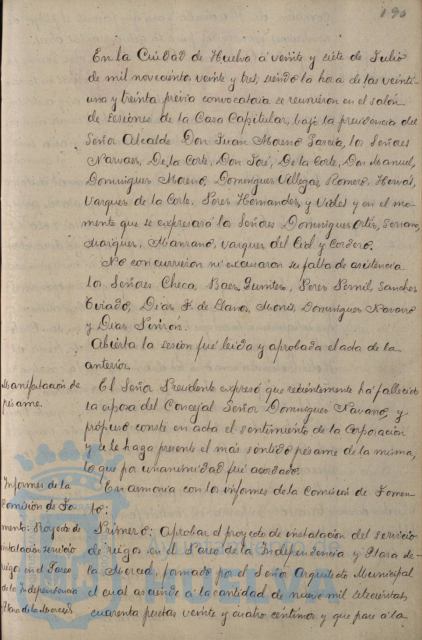 190
En la Ciudad de Huelva á veinte y siete de Julio
de mil novecientos veinte y tres, siendo la hora de las veinti-
una y treinta previa convocatoria se reunieron en el salón
de Sesiones de la Casa Capitular, bajo la presidencia del
Señor Alcalde Don Juan Moreno García, los Señores
Narvaez, De la Corte, Don José, De la Corte, Don Manuel,
Dominguez Moreno, Dominguez Villegas, Romero, Hervás,
Vazquez de la Corte, Perez Hernandez, y Vides y en el mo-
mento que se expresará los Señores Dominguez Ortiz, Serrano,
Marquez, Manzano, Vazquez del Cid y Cordero.
No concurrieron ni excusaron su falta de asistencia
los Señores Checa, Baez, Quintero, Perez, Sanchez
Diaz F. de Llanos, Dominguez Navarro
y Diaz
Abierta la sesión fué leida y aprobada el acta de la
anterior.
Manifestación de
pésame.
El Señor Presidente expresó que recientemente ha fallecido
la esposa del Concejal Señor Dominguez Navarro, y
propuso conste en acta el sentimiento de la Corporación
y se le haga presente el más sentido pésame de la misma,
lo que por unanimidad fué acordado.
Informes de la
Comisión de Fo-
mento: Proyecto de
instalación servicio
riego en el Paseo
de la Independencia
Plaza de la Merced.
En armonia con los informes de la Comisión de Fomen-
to:
Primero: Aprobar el proyecto de instalación del servicio
de riegos en el Paseo de la Independencia y Plaza de
la Merced, formado por el Señor Arquitecto Municipal
el cual asciende á la cantidad de nueve mil setecientas
cuarenta pesetas veinte y cuatro centimos y que pase á la